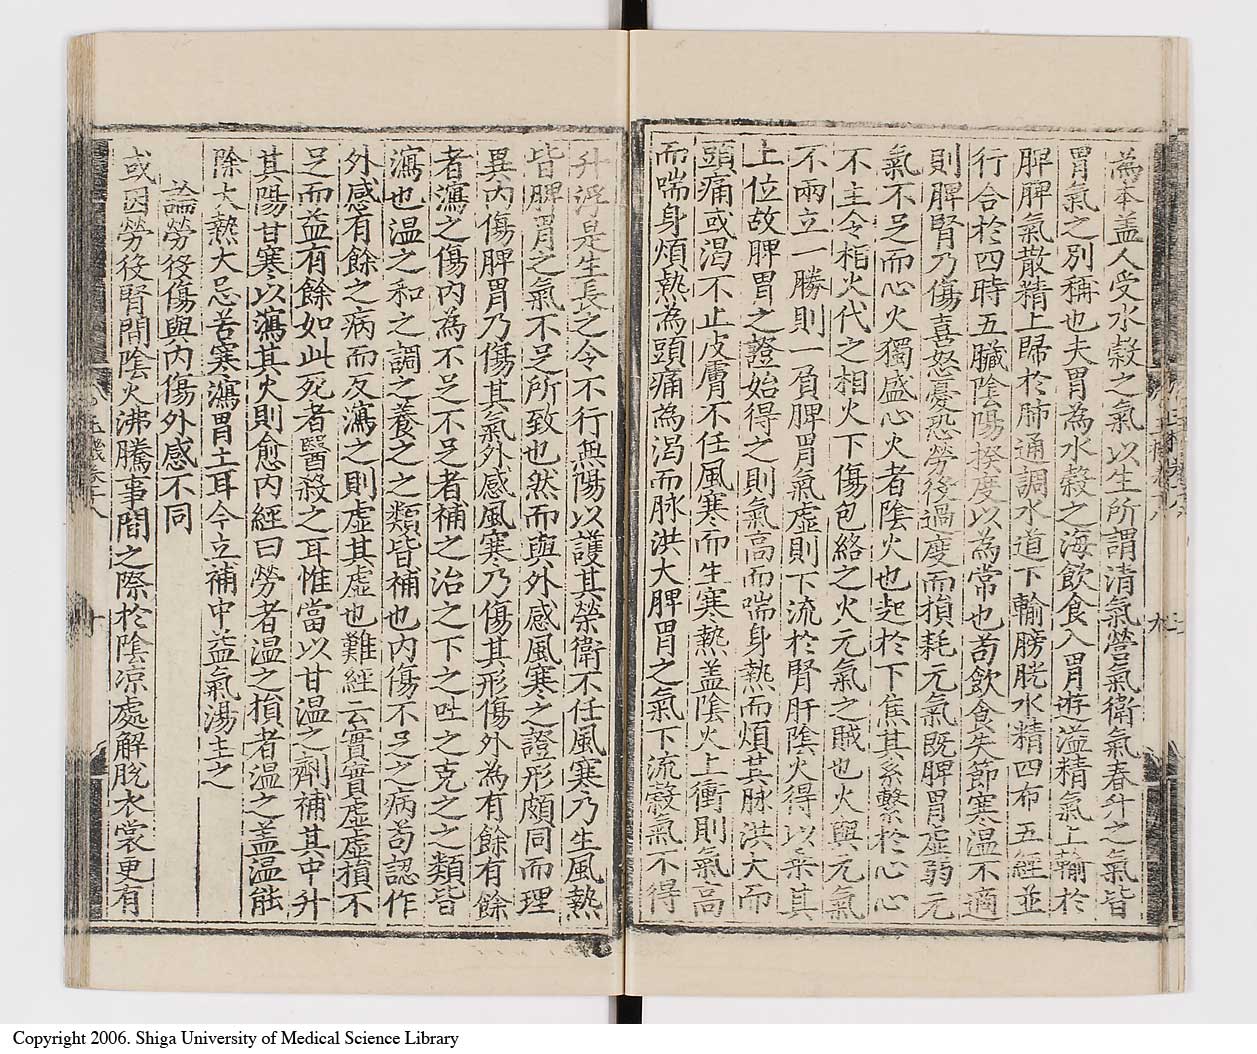 為本盖人受水穀之氣以生所謂清氣營氣衛氣春升之氣皆
胃氣之別稱也夫胃為水穀之海飲食入胃遊溢精氣上輸於
脾脾氣散精上歸於肺通調水道下輸膀胱水精四布五經並
行合於四時五臟陰陽揆度以為常也苟飲食失節寒温不適
則脾腎乃傷喜怒憂恐勞役過度而損耗元氣既脾胃虚弱元
氣不足而心火獨盛心火者陰火也起於下焦其系繫於心心
不主令相火代之相火下傷包絡之火元氣之賊也火與元氣
不兩立一勝則一負脾胃氣虚則下流於腎肝陰火得以乗其
上位故脾胃之證始得之則氣高而喘身熱而煩其脉洪大而
頭痛或渴不止皮膚不任風寒而生寒熱盖陰火上衝則氣高
而喘身煩熱為頭痛為渴而脉洪大脾胃之氣下流穀氣不得
升浮是生長之令不行無陽以護其榮衛不任風寒乃生風熱
皆脾胃之氣不足所致也然而與外感風寒之證形頗同而理
異内傷脾胃乃傷其氣外感風寒乃傷其形傷外為有餘有餘
者瀉之傷内為不足不足者補之治之下之吐之克之之類皆
瀉也温之和之調之養之之類皆補也内傷不足之病苟認作
外感有餘之病而反瀉之則虚其虚也難經云實實虚虚損不
足而益有餘如此死者醫殺之耳惟當以甘温之劑補其中升
其陽甘寒以瀉其火則愈内經曰勞者温之損者温之盖温能
除大熱大忌苦寒瀉胃土耳今立補中益氣湯主之
論勞役傷與内傷外感不同
或因勞役腎間陰火沸騰事間之際於陰凉處解脱衣裳更有
Copyright 2006. Shiga University of Medical Science Library